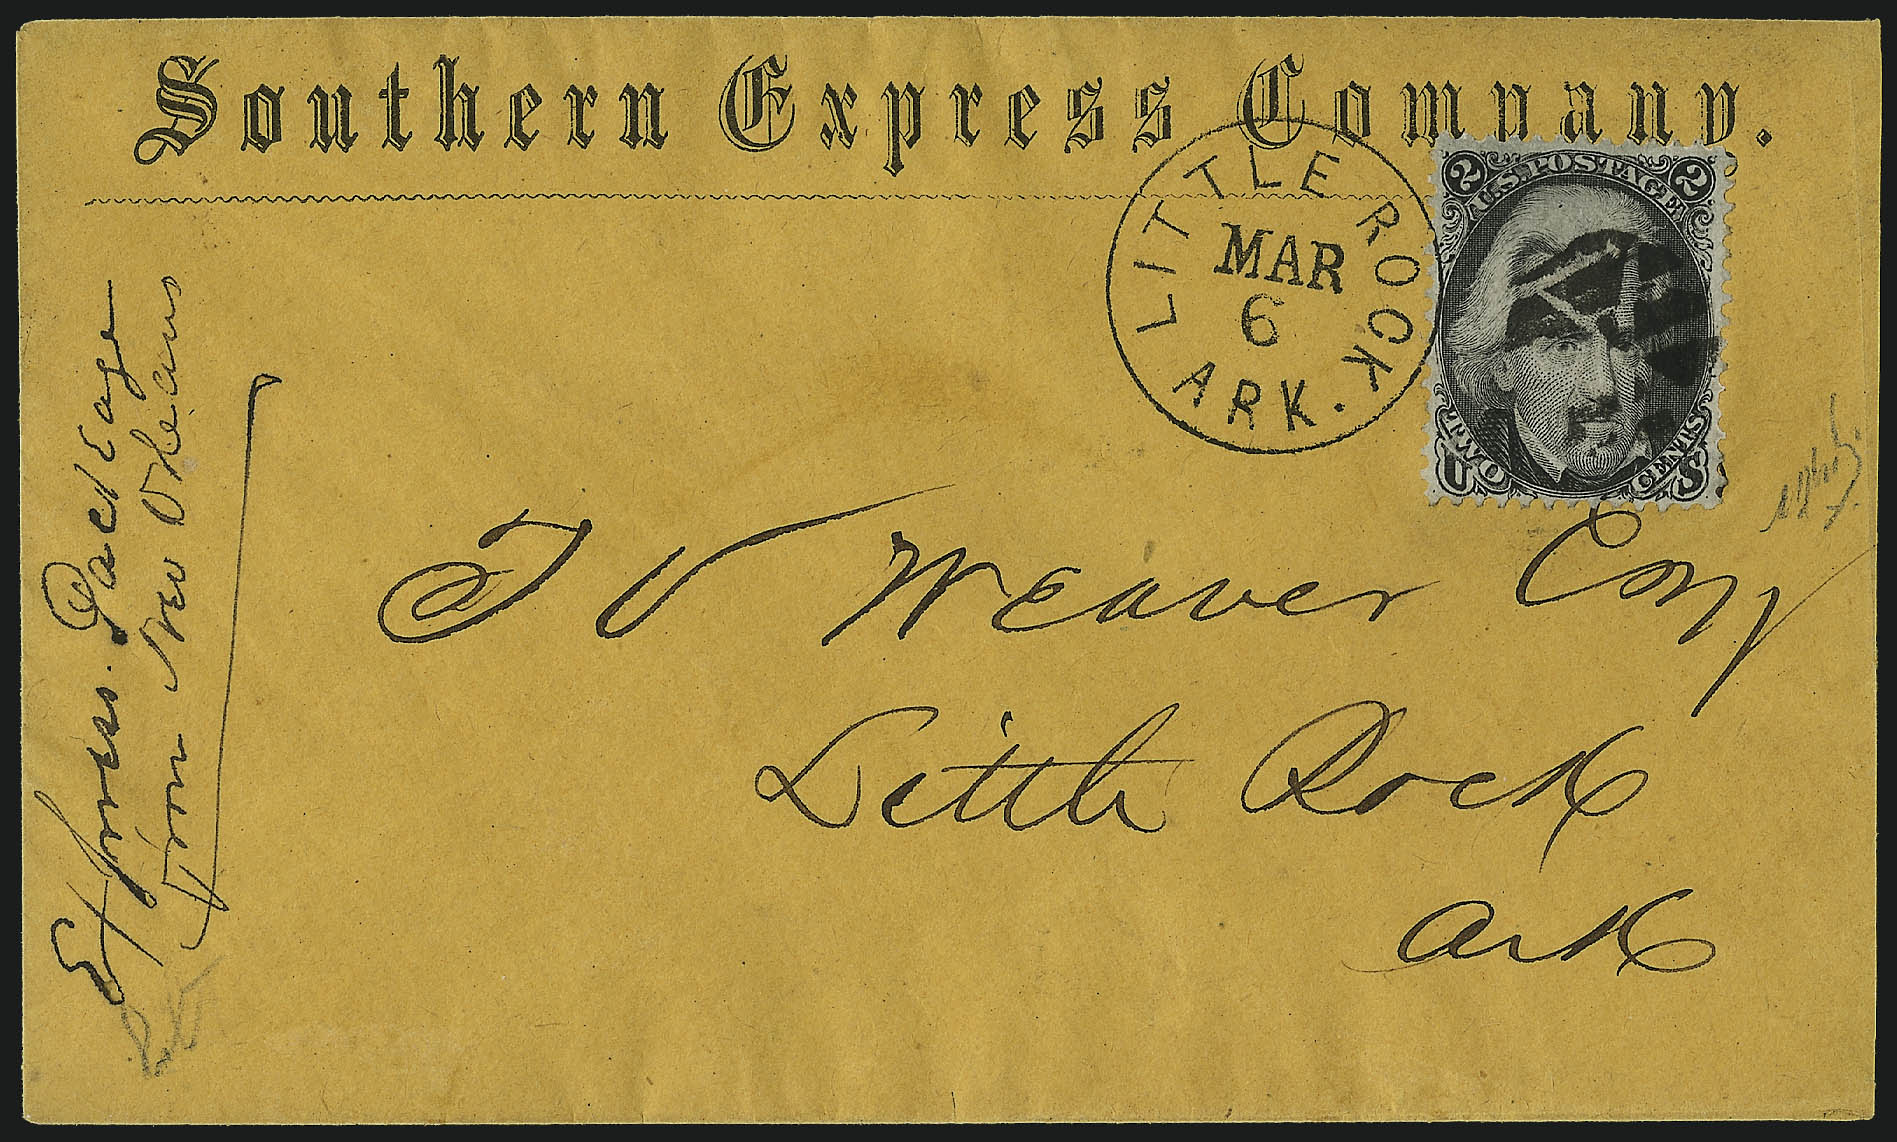 Southern Express Company.
LITTLE ROCK
MAR
6
ARK.
2 U.S. POSTAGE 2
TWO CENTS
U S
Express Package
from New Orleans
J V Weaver Esq
Little Rock
Ark